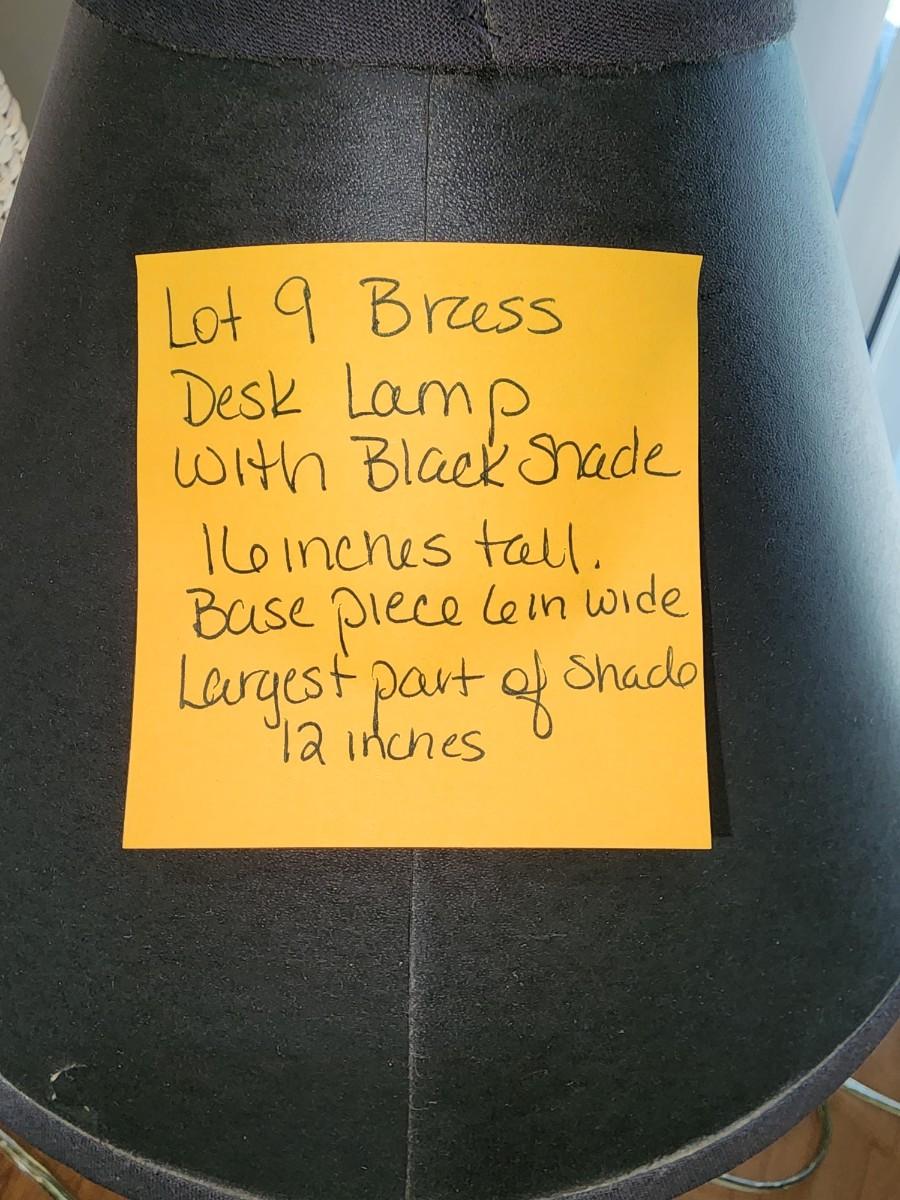 Lot 9 Brass
Desk Lamp
with Black Shade
16 inches tall.
Base piece 6in wide
Largest part of Shade
12 inches